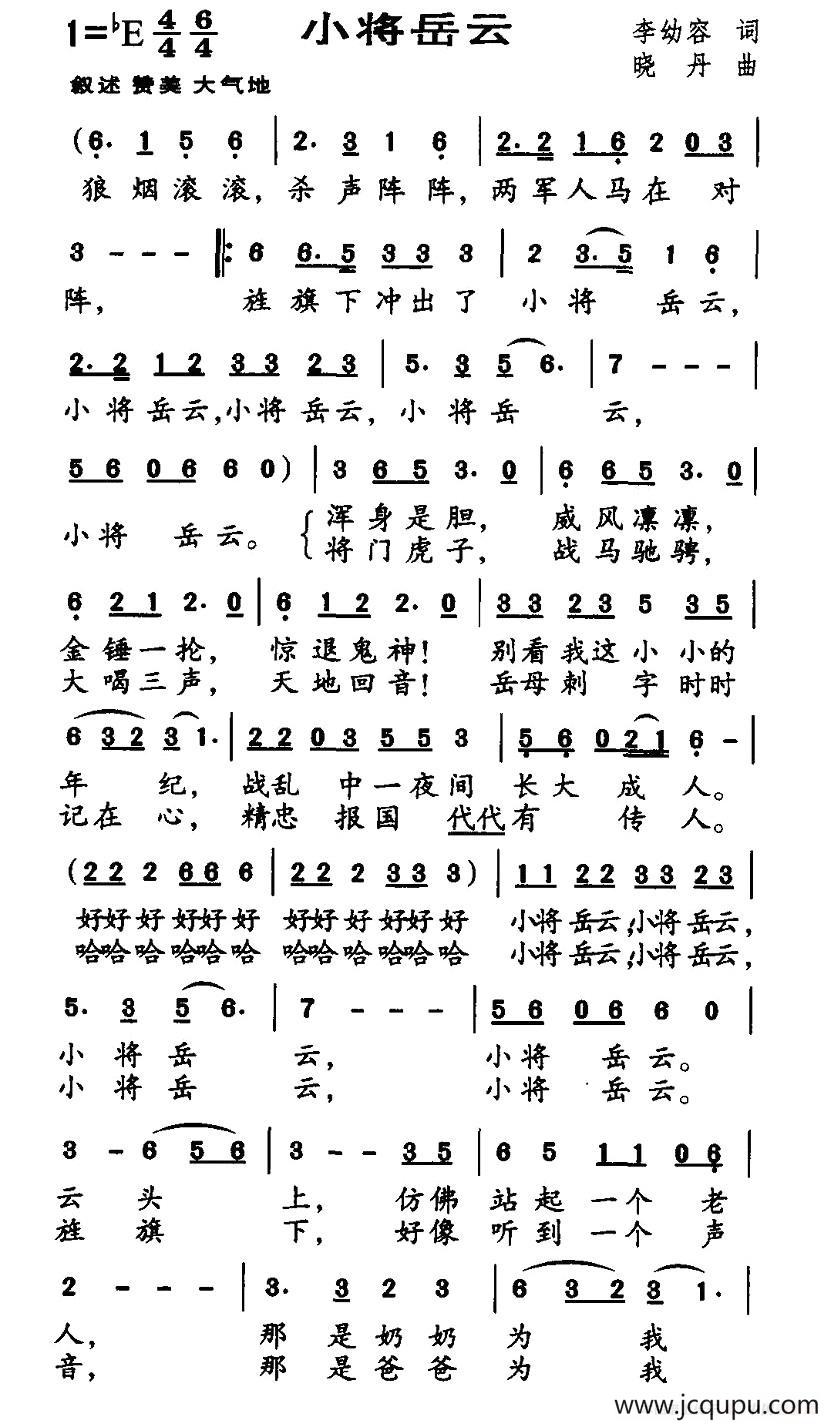 1=♭E 4/4 6/4 小将岳云 李幼容 词
叙述 赞美 大气地 晓丹 曲
(6. 1 5 6 | 2. 3 1 6 | 2. 2 1 6 2 0 3 |
狼烟滚滚,杀声阵阵,两军人马在 对
3 - - - ‖: 6 6. 5 3 3 3 3 | 2 3. 5 1 6 |
阵, 旌旗下冲出了 小将 岳云,
2. 2 1 2 3 3 2 3 | 5. 3 5 6. | 7 - - - |
小将岳云,小将岳云,小将岳 云,
5 6 0 6 6 0) | 3 6 5 3. 0 | 6 6 5 3. 0 |
小将 岳云。 浑身是胆, 威风凛凛,
将门虎子, 战马驰骋,
6 2 1 2. 0 | 6 1 2 2. 0 | 3 3 2 3 5 3 5 |
金锤一抡, 惊退鬼神! 别看我这小小的
大喝三声, 天地回音! 岳母刺 字时时
6 3 2 3 1. | 2 2 0 3 5 5 3 | 5 6 0 2 1 6 - |
年 纪, 战乱 中一夜间 长大 成 人。
记在 心, 精忠 报国 代代有 传 人。
(2 2 2 6 6 6 | 2 2 2 3 3 3) | 1 1 2 2 3 3 2 3 |
好好好好好好 好好好好好好 小将岳云,小将岳云,
哈哈哈哈哈哈 哈哈哈哈哈哈 小将岳云,小将岳云,
5. 3 5 6. | 7 - - - | 5 6 0 6 6 0 |
小将岳 云, 小将 岳云。
小将岳 云, 小将 岳云。
3 - 6 5 6 | 3 - - 3 5 | 6 5 1 1 0 6 |
云 头 上, 仿佛 站起一个 老
旌 旗 下, 好像 听到一个 声
2 - - - | 3. 3 2 3 | 6 3 2 3 1. |
人, 那是奶奶 为 我
音, 那是爸爸 为 我
www.jcqupu.com